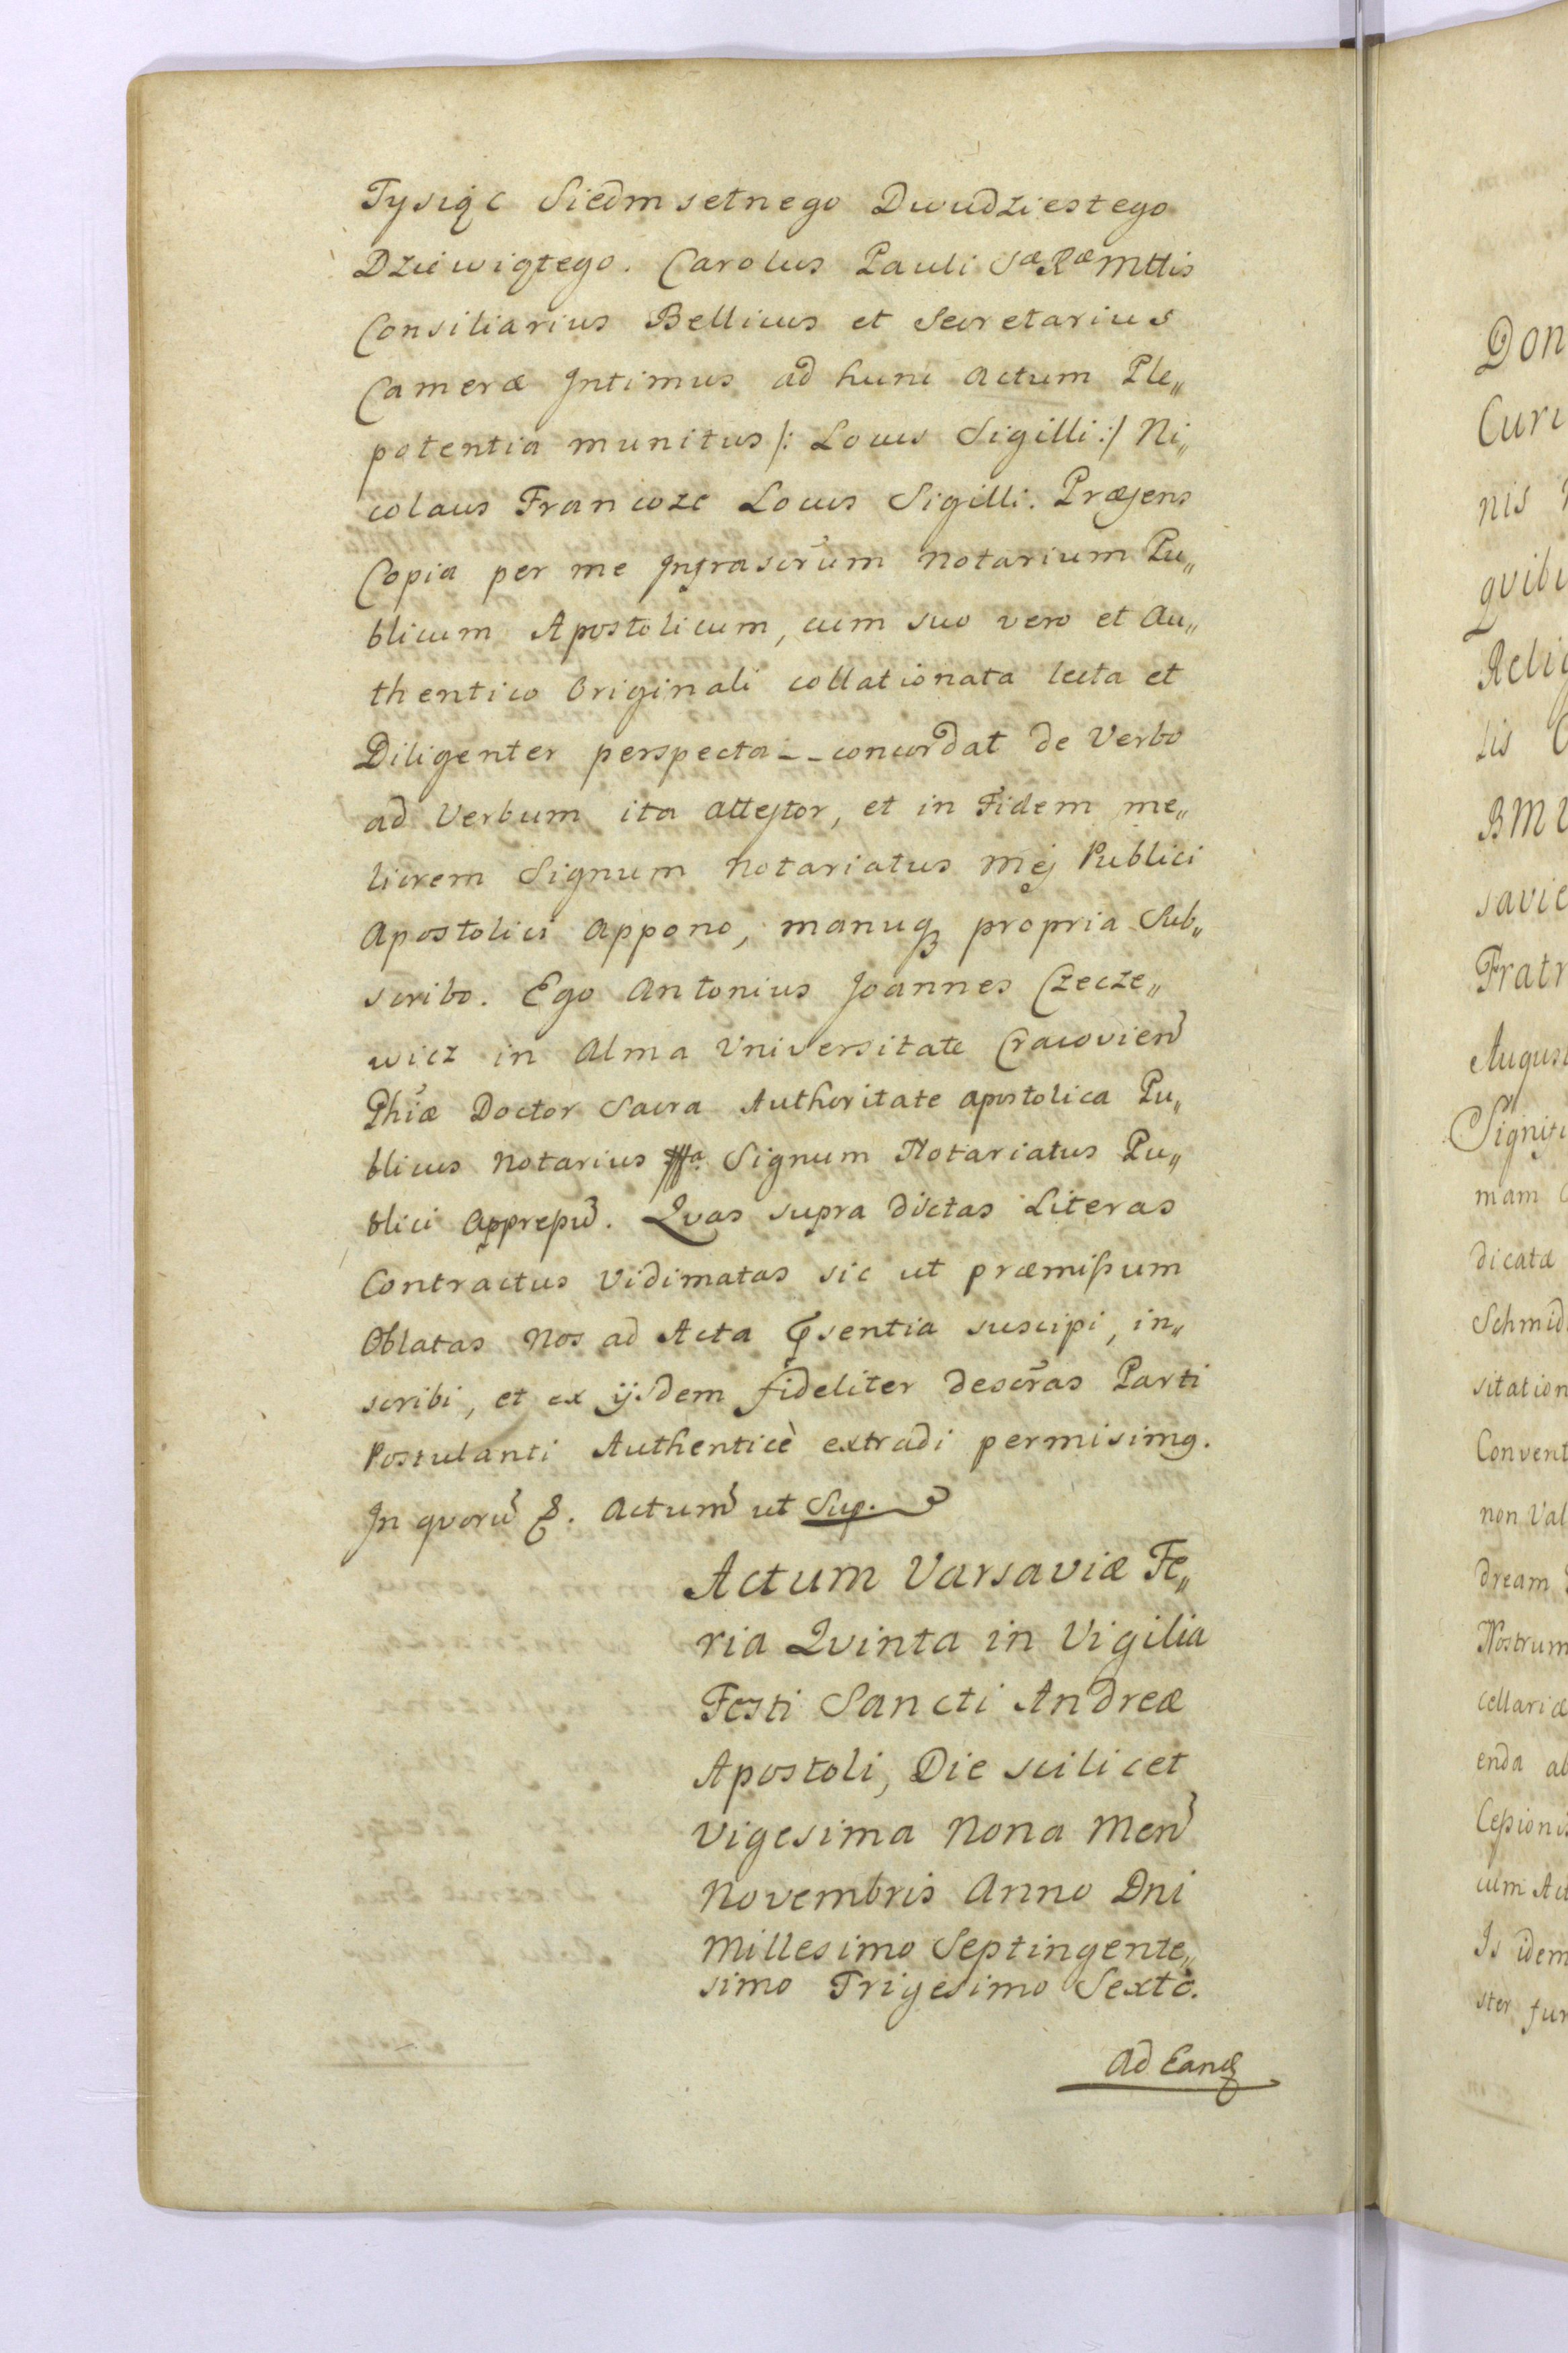 Tysiąc Siedmsetnego Dwudziestego
Dziewiątego. Carolus Pauli Sæ Ræ Mttis
Consiliarius Bellicus et Secretarius
Cameræ Intimus ad hunc actum Ple„
potentia munitus /: Locus Sigilli :/ Ni„
colaus Francozc Locus Sigilli. Præsens
Copia per me Infrascrũm Notarium Pu„
blicum Apostolicum, cum suo vero et Au„
thentico Originali collationata lecta et
Diligenter perspecta _ _ concordat de Verbo
ad Verbum ita attestor, et in Fidem me„
liorem Signum Notariatus mej Publici
Apostolici appono, manuq3 propria Sub„
scribo. Ego Antonius Joannes Czecze„
wicz in Alma Universitate Cracovien
Phiæ Doctor Sacra Authoritate apostolica Pu„
blicus Notarius Signum Notariatus Pu„
blici Quas supra dictas Literas
Contractus Vidimatas sic ut præmißum
Oblatas Nos ad Acta Psentia suscipi, in„
scribi, et ex ijsdem fideliter descrãs Parti
Postulanti Authenticè extradi permisimg.
In quorũ &. Actum ut Sup.
Actum Varsaviæ Fe„
ria Quinta in Vigilia
Festi Sancti Andreæ
Apostoli, Die scilicet
Vigesima Nona Men
Novembris Anno Dni
Millesimo Septingente„
simo Trigesimo Sexto.
Ad Eandẽ
Don
Curi
nis
quibu
Relig
lis
BMV
savie
Fratr
August
Signifi
mam
dicatæ
Schmid
sitation
Convent
non Val
dream
Nostrum
cellariæ
enda ab
Ceßionis
culm Act
Is idem
ster fur